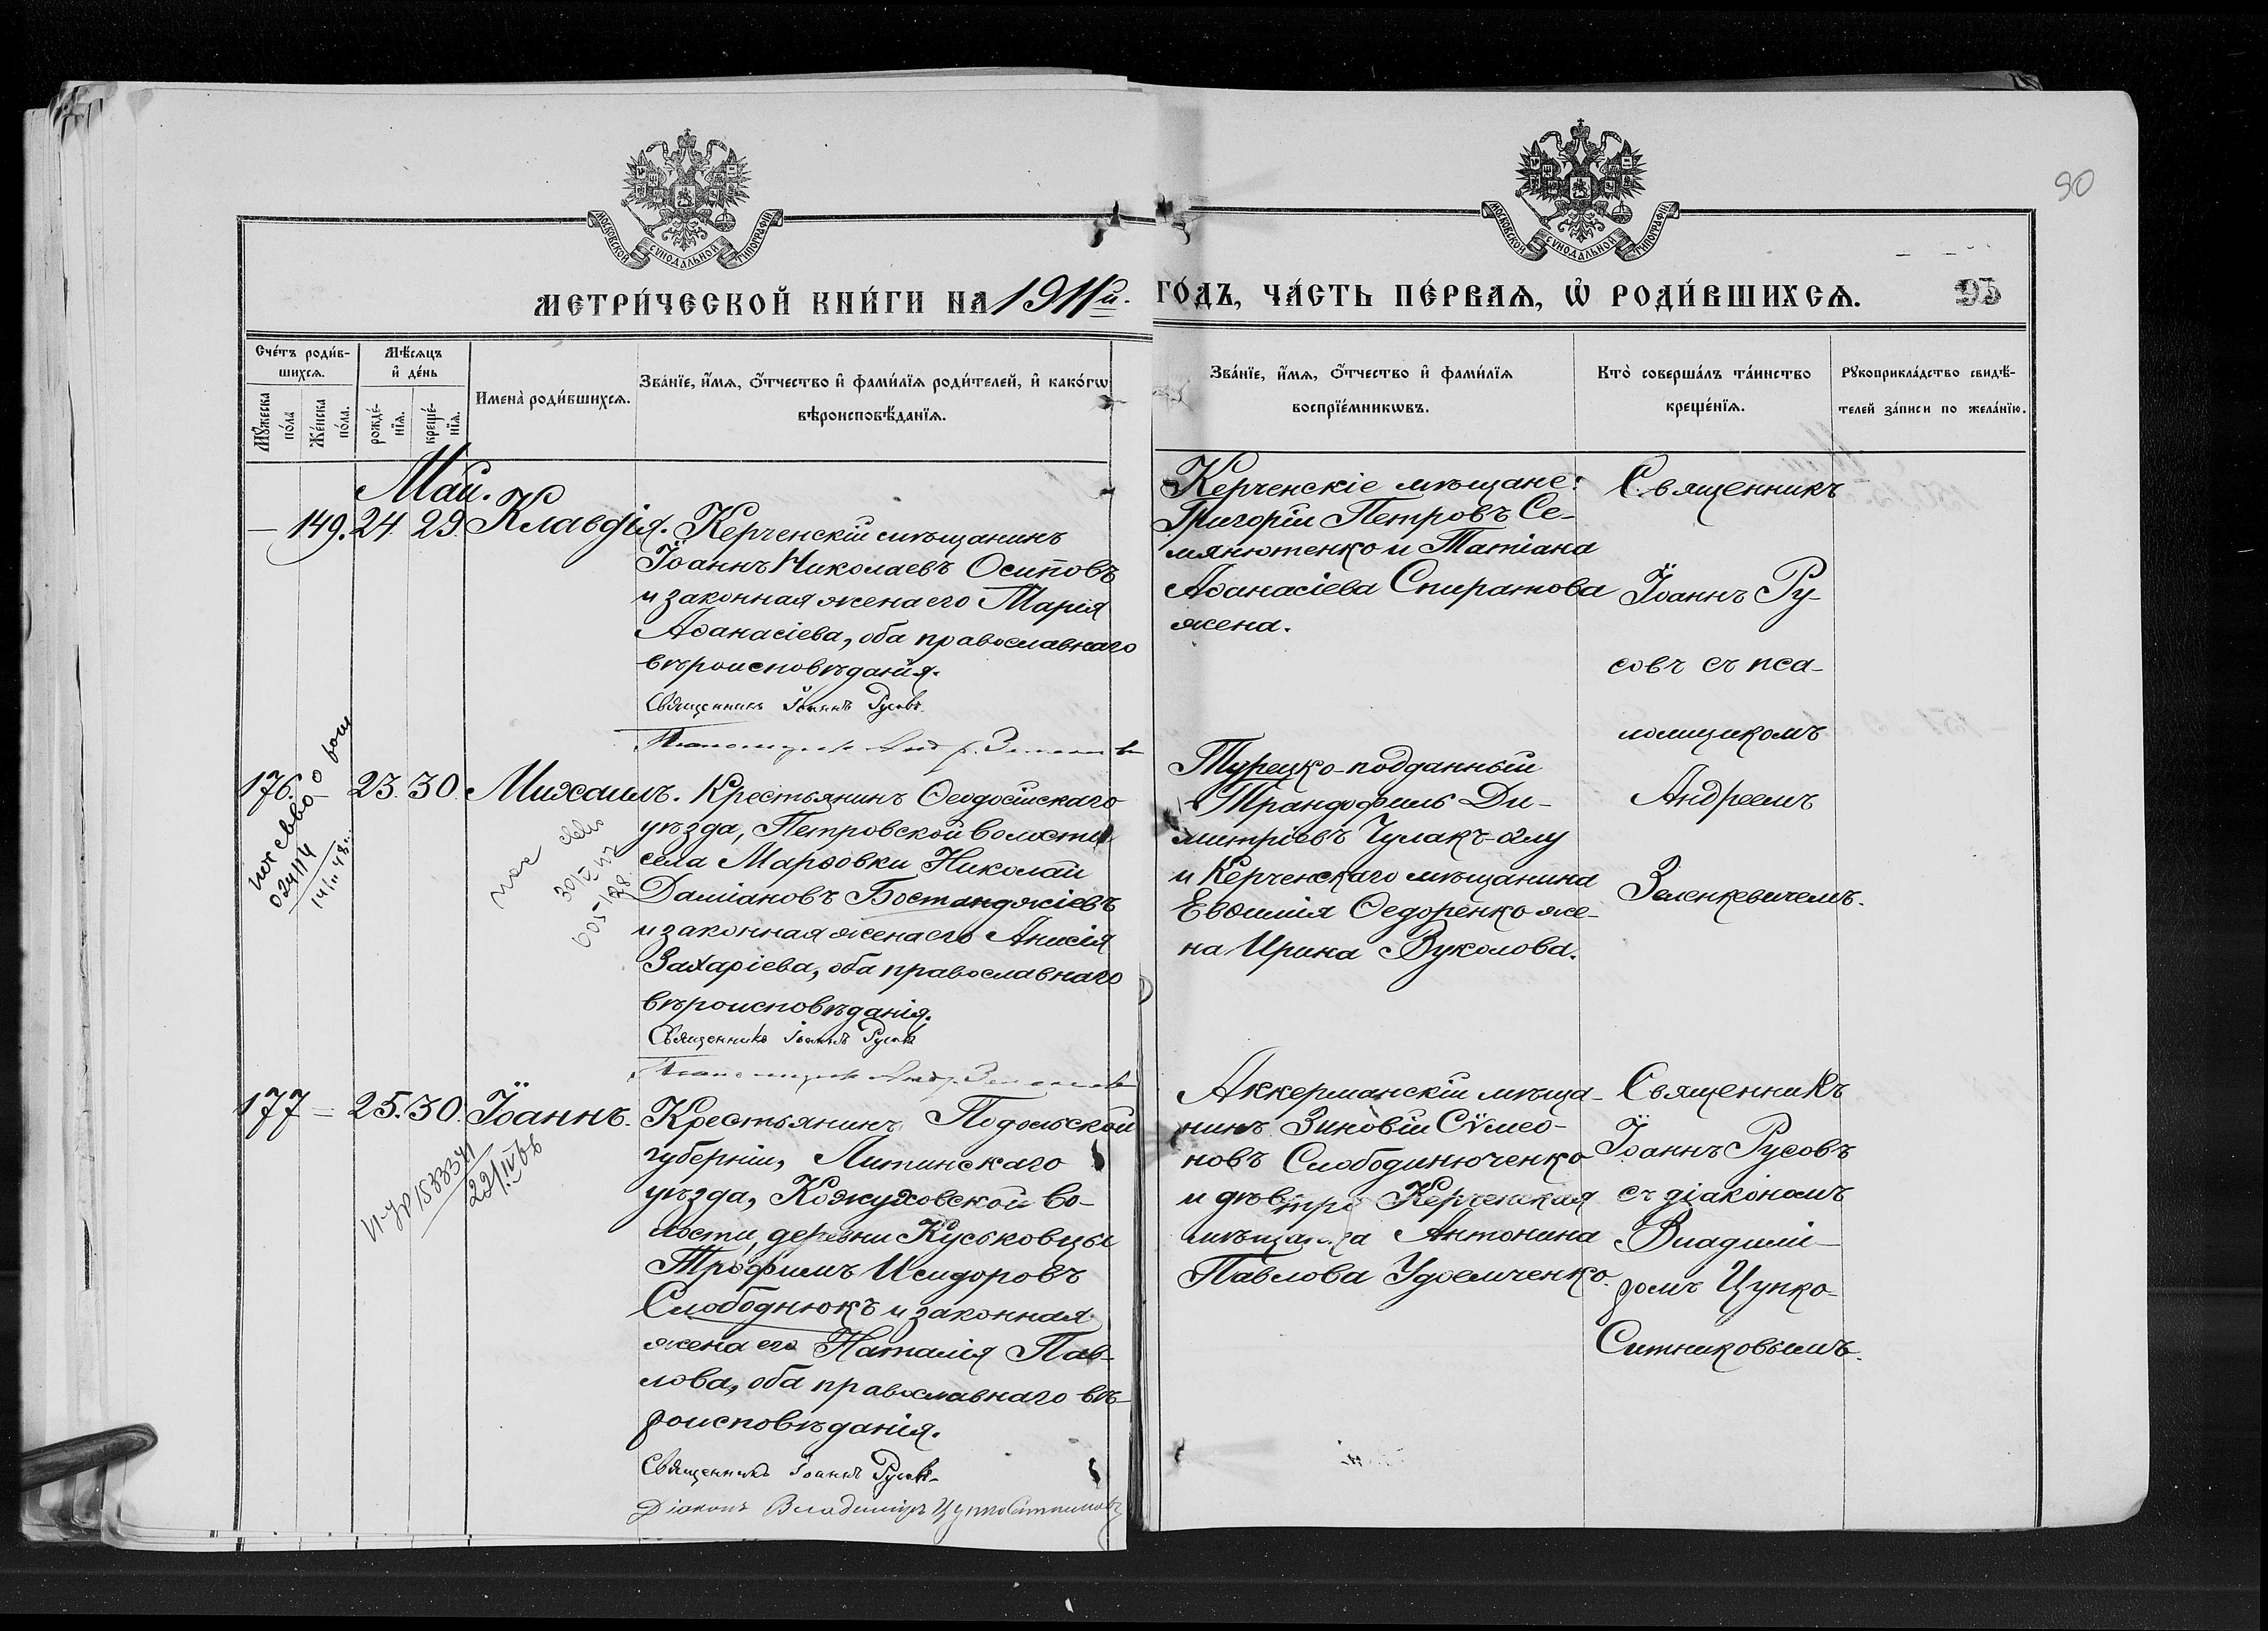 90
МОСКОВСКОЙ СУНОДАЛЬНОЙ ТИПОГРАФІИ
МОСКОВСКОЙ СУНОДАЛЬНОЙ ТИПОГРАФІИ
МЕТРИ́ЧЕСКОЙ КНИ́ГИ НА 1911й.
ГО́ДЪ, ЧА́СТЬ ПЕ́РВАѦ, Ѡ҆ РОДИ́ВШИХСѦ.
95
Сче́тъ роди́в-
шихсѧ.
Мꙋ́жеска
по́ла
Же́нска
по́ла.
Мѣ́сѧцъ
и҆ де́нь
рожде́-
нїѧ.
креще́-
нїѧ.
Имена̀ роди́вшихсѧ.
Зва́нїе, и҆́мѧ, ѻ҆́тчество и҆ фами́лїѧ роди́телей, и҆ како́гѡ
вѣроисповѣ́данїѧ.
Зва́нїе, и҆́мѧ, ѻ҆́тчество и҆ фами́лїѧ
воспрїе́мникѡвъ.
Кто̀ соверша́лъ та́инство
креще́нїѧ.
Рꙋкоприкла́дство свидѣ́-
телей за́писи по жела́нїю.
Май.
— 149. 24. 29. Клавдія.
Керченскій мѣщанинъ
Іоаннъ Николаевъ Осиповъ
и законная жена его Марія
Аѳанасіева, оба православнаго
вѣроисповѣданія.
Священникъ Іоаннъ Русовъ
Керченскіе мѣщане:
Григорій Петровъ Се-
мянютенко и Татіана
Аѳанасіева Спиратова
жена.
Священникъ
Іоаннъ Ру-
совъ съ пса-
ломщикомъ
Андреемъ
Зеленкевичемъ.
176. — 23. 30. Михаилъ.
024114
14/II 48
30/IV 47
Крестьянинъ Ѳеодосійскаго
уѣзда, Петровской волости
села Марѳовки Николай
Даміановъ Бостанджіевъ
и законная жена его Анисія
Захаріева, оба православнаго
вѣроисповѣданія.
Священникъ Іоаннъ Русовъ
Турецко-подданный
Трандофилъ Ди-
митріевъ Чулакъ-оглу
и Керченскаго мѣщанина
Евѳимія Ѳедоренко же-
на Ирина Вуколова.
177 — 25. 30. Іоаннъ.
Крестьянинъ Подольской
губерніи, Литинскаго
уѣзда, Кожуховской во-
лости, деревни Куськовцы
Трофимъ Исидоровъ
Слободнюкъ и законная
жена его Наталія Пав-
лова, оба православнаго вѣ-
роисповѣданія.
Священникъ Іоаннъ Русовъ
Діаконъ Владиміръ Цупко-Ситниковъ
Аккерманскій мѣща-
нинъ Зиновій Сѵмео-
новъ Слободинюченко
и дѣвица Керченская
мѣщанка Антонина
Павлова Удоемченко.
Священникъ
Іоаннъ Русовъ
съ діакономъ
Владимі-
ромъ Цупко-
Ситниковымъ.